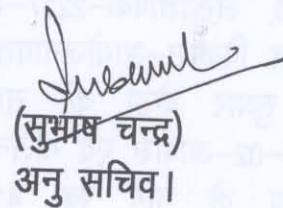 (सुभाष चन्द्र)
अनु सचिव।